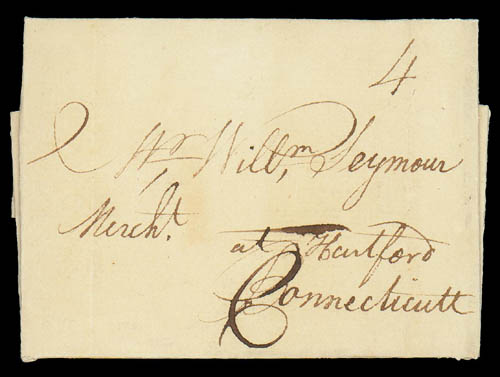 4
Mr Willm, Seymour
Mercht.
at Hartford
Connecticutt